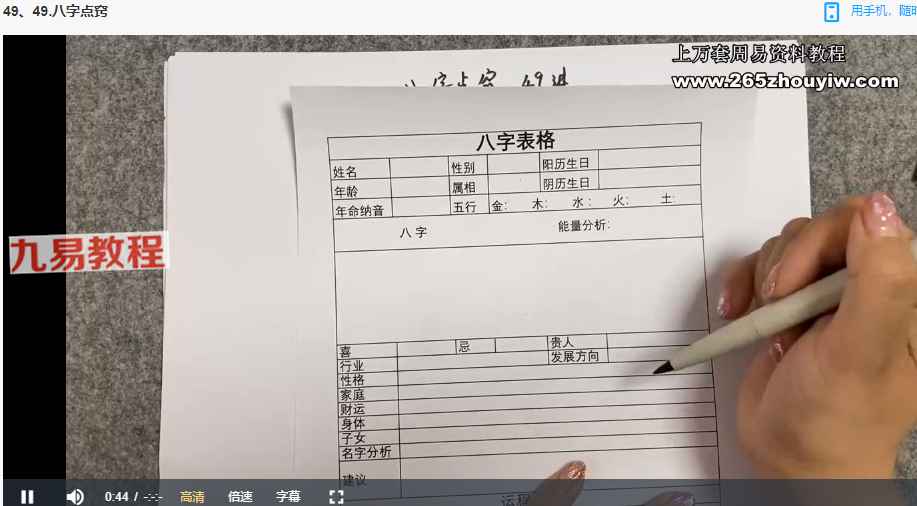 49、49.八字点窍
用手机，随时
上万套周易资料教程
www.265zhouyiw.com
八字点窍 49讲
八字表格
姓名 性别 阳历生日
年龄 属相 阴历生日
年命纳音 五行 金： 木： 水： 火： 土：
八字 能量分析：
九易教程
喜 忌 贵人
行业 发展方向
性格
家庭
财运
身体
子女
名字分析
建议
0:44 / -:-:- 高清 倍速 字幕